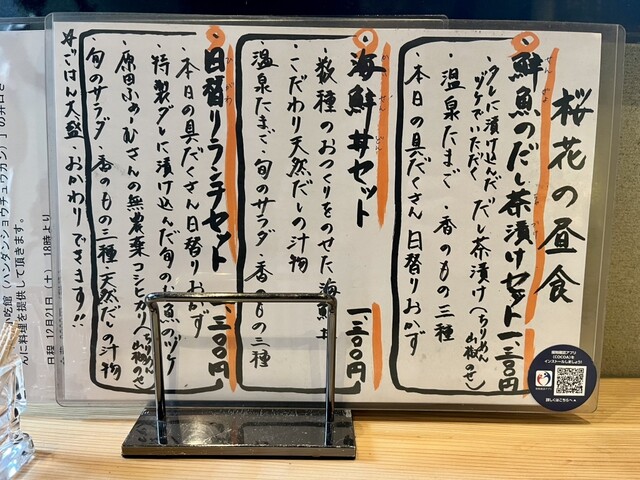 桜花の昼食
鮮魚のだし茶漬けセット 一、三〇〇円
・タレに漬け込んだ だし茶漬け(ちりめん山椒のせ)
ヅケでいただく
・温泉たまご ・香のもの三種
・本日の具だくさん日替りおかず
海鮮丼セット 一三〇〇円
・数種のおつくりをのせた海鮮丼
・こだわり天然だしの汁物
・温泉たまご・旬のサラダ・香のもの三種
日替りランチセット 一、三〇〇円
・本日の具だくさん日替りおかず
・特製ダレに漬け込んだ旬のお魚のヅケ
・原田ふぁーむさんの無農薬コシヒカリ(ちりめん山椒のせ)
・旬のサラダ・香のもの三種・天然だしの汁物
※ごはん大盛 おかわりできます!!
接触確認アプリ
(COCOA)を
インストールしましょう!
詳しくはこちらへ
小吃館(ハンダンショウチュウカン)」の井口さ
んに料理を提供して頂きます。
日程 12月21日(土) 18時より